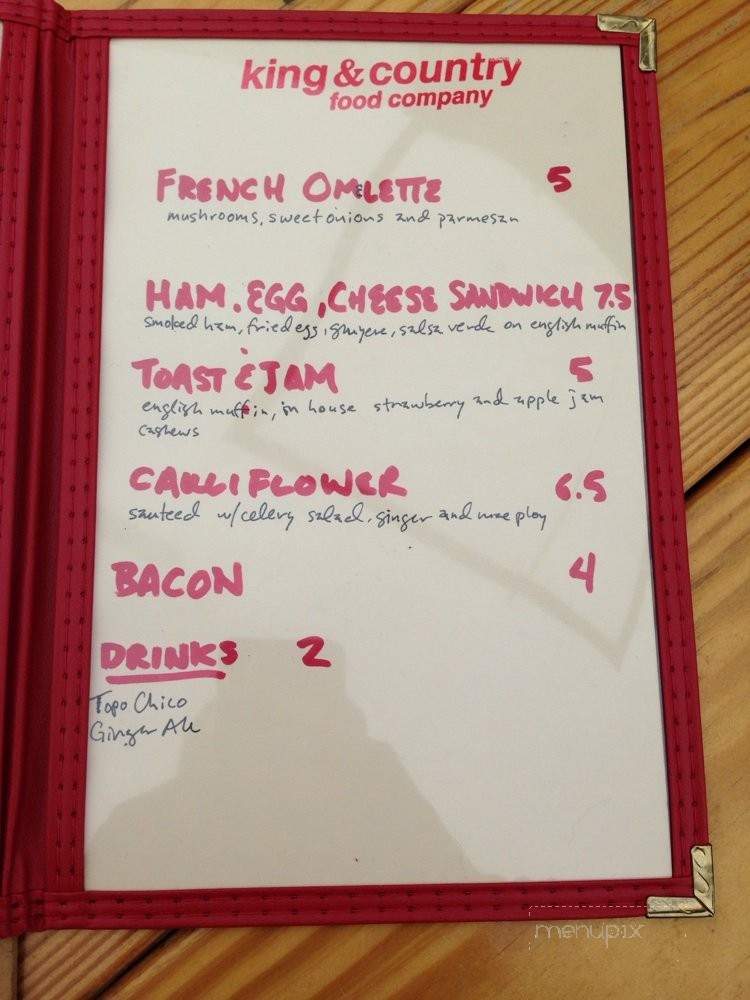 king & country
food company
FRENCH OMELETTE 5
mushrooms, sweet onions and parmesan
HAM, EGG, CHEESE SANDWICH 7.5
smoked ham, fried egg, gruyere, salsa verde on english muffin
TOAST & JAM 5
english muffin, in house strawberry and apple jam
cashews
CAULIFLOWER 6.5
sauteed w/celery salad, ginger and mae ploy
BACON 4
DRINKS 2
Topo Chico
Ginger Ale
menupix